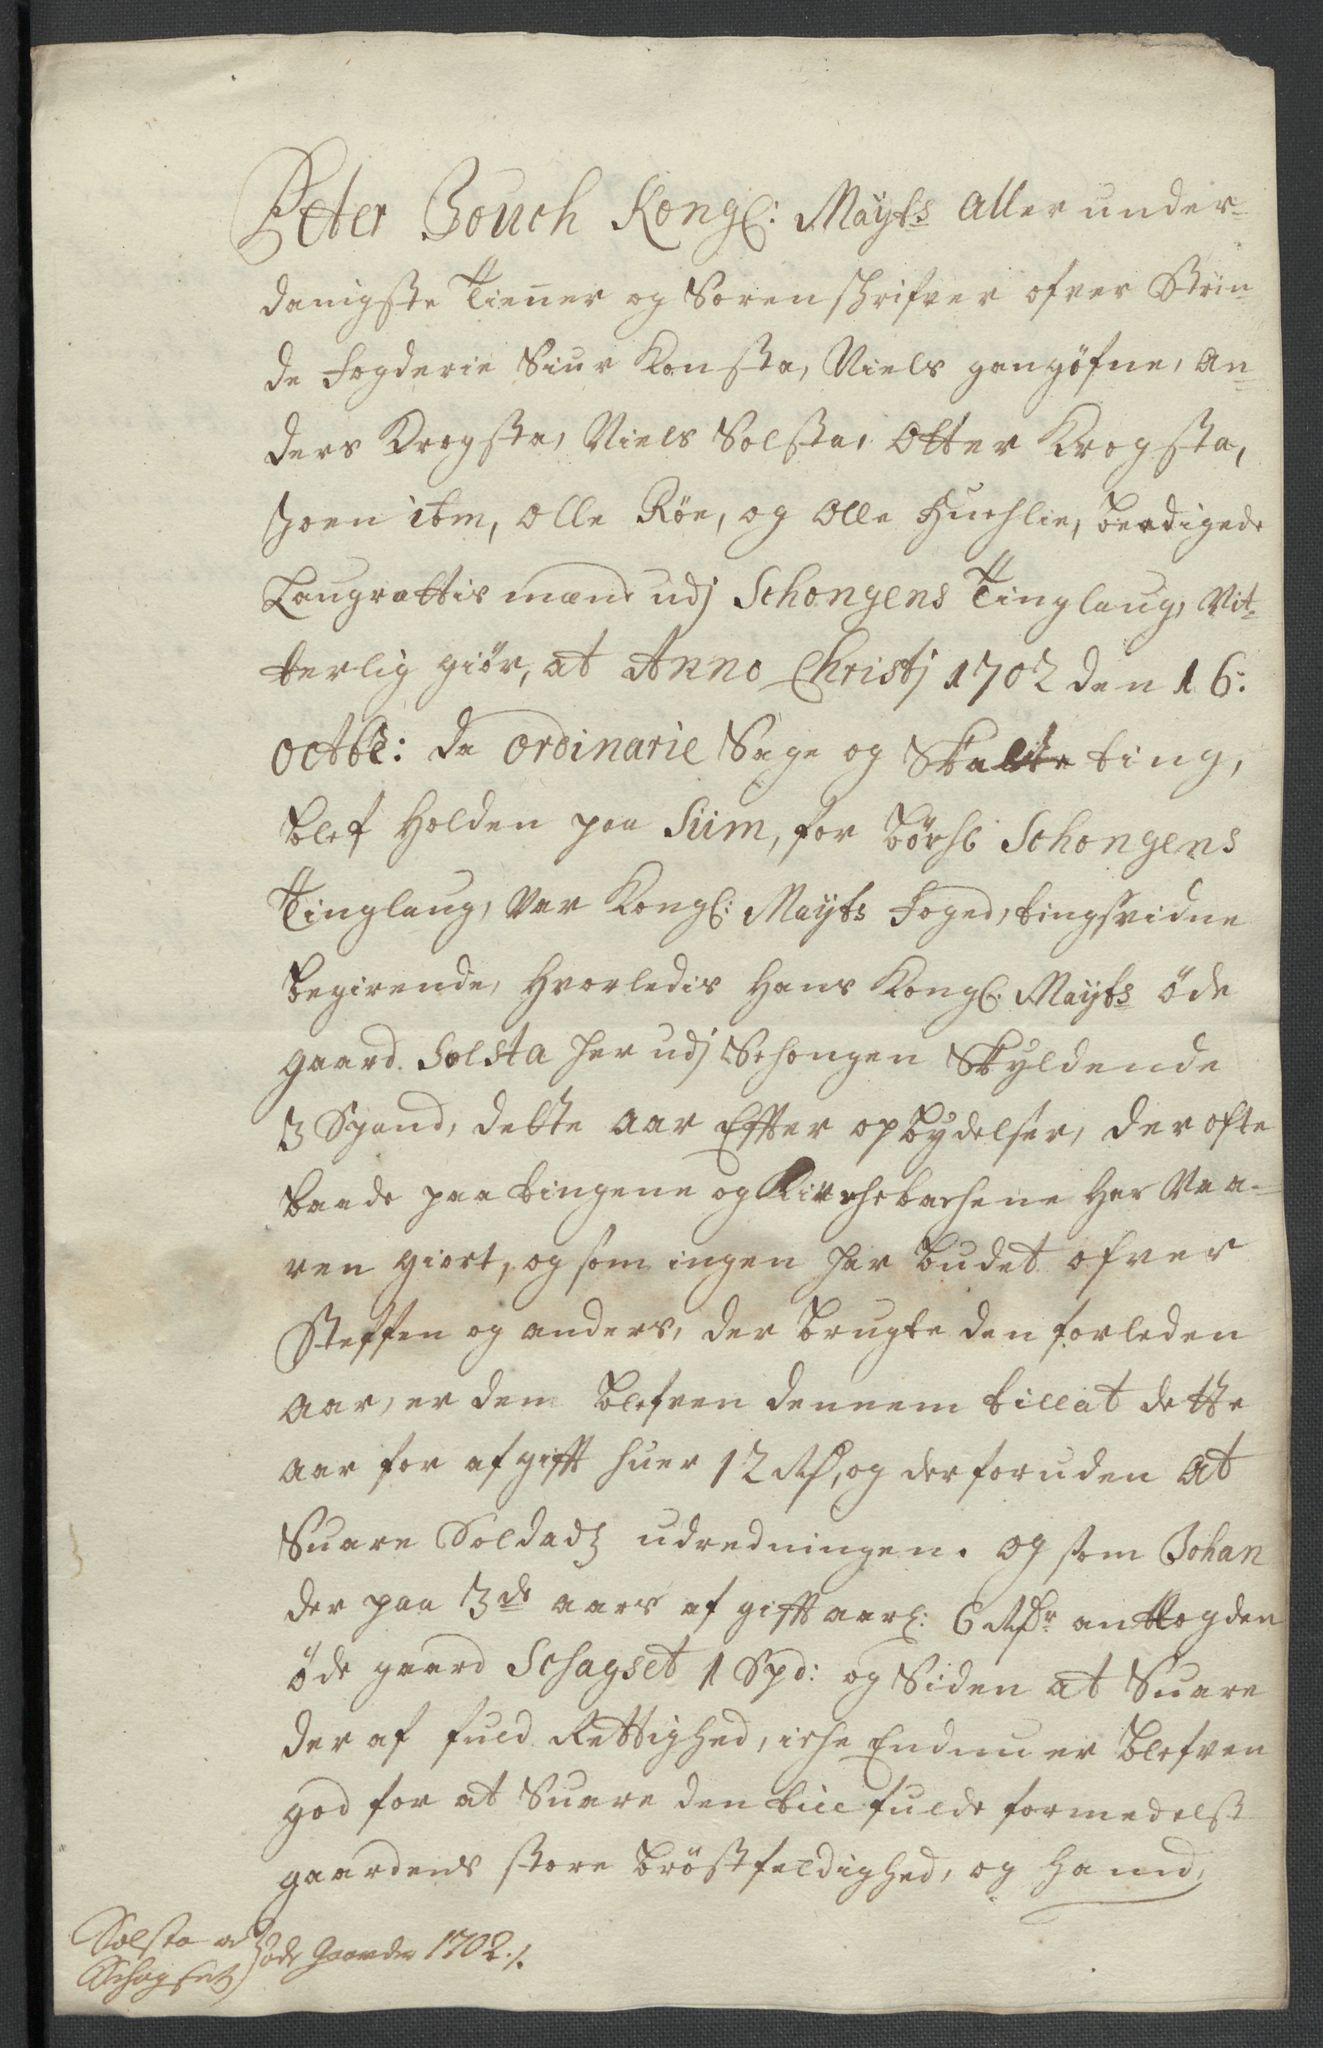 Peter Bouch Kongl: Mayts Aller under-
danigste Tienner og Sorenschrifver ofver Strin-
de Fogderie Siur Konsta, Niels gangøfne, An-
ders Krogsta, Niels Solsta, Otter Krogsta,
Joen ibm, Olle Röe, og Olle Huchlie, beædigede
Laugrettis mænd udj Schongens Tinglaug, Vit-
terlig giör, at Anno Christj 1702 den 16:
octbr: da ordinarie Sage og Skatte ting,
blef Holden paa Siim, for börste Schongens
Tinglaug, var Kongl: Mayts Foged, tingsvidne
begirende, Hvorledis Hans Kongl: Mayts öde
gaard Solsta her udj Schongen Skyldende
3 Spand, dette aar Effter opbydelser, der ofte
baade paa tingene og Kirchebachene Har Vaa-
ren giort, og som ingen har budet ofver
Steffen og anders, der brugte den forleden
aar, er dem blefven dennem tillat dette
aar for afgifft huer 12 Mk, og der foruden At
Suare Soldadz udredningen. og som Johan
der paa 3de aars afgifft aarl: 6 Mkr antog den
öde gaard Schagset 1 Spd: og Siden at Suare
der af fuld Rettighed, iche Endnu er blefven
god for at Suare den till fulde formedelst
gaardens store bröstfeldighed, og Hannd,
Solsta og
Schagset öde Gaarder 1702 ./.